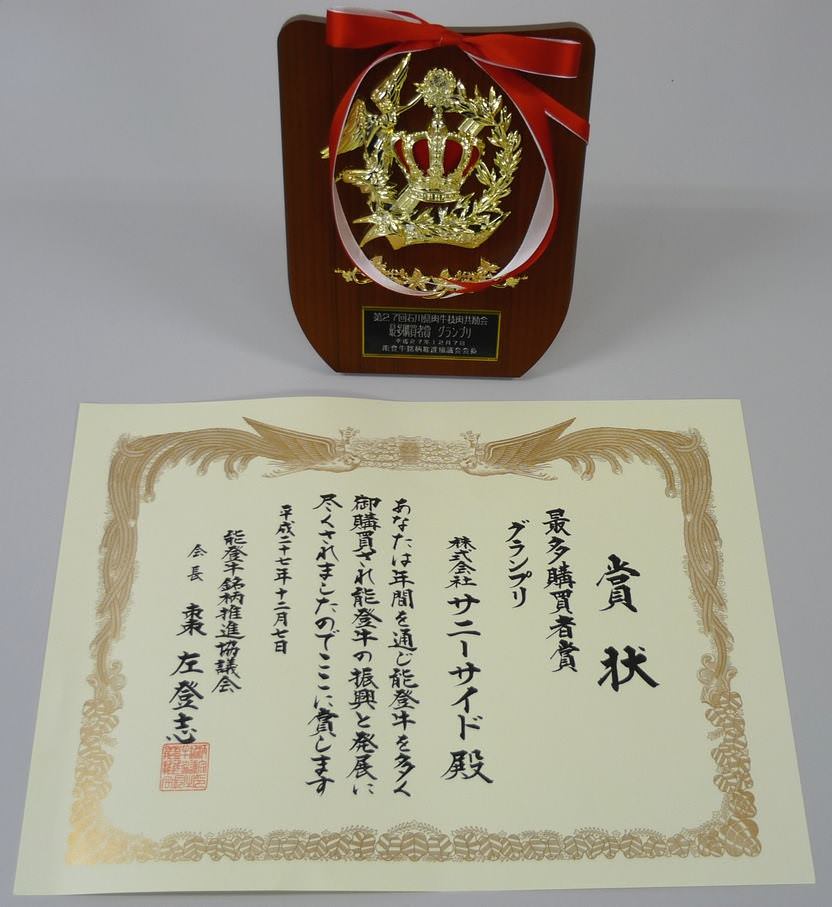 第27回石川県肉牛枝肉共励会
最多購買者賞 グランプリ
平成27年12月7日
能登牛銘柄推進協議会会長
賞状
最多購買者賞
グランプリ
株式会社 サニーサイド 殿
あなたは年間を通じ能登牛を多く
御購買され能登牛の振興と発展に
尽くされましたのでここに賞します
平成二十七年十二月七日
能登牛銘柄推進協議会
会長 棗 左登志